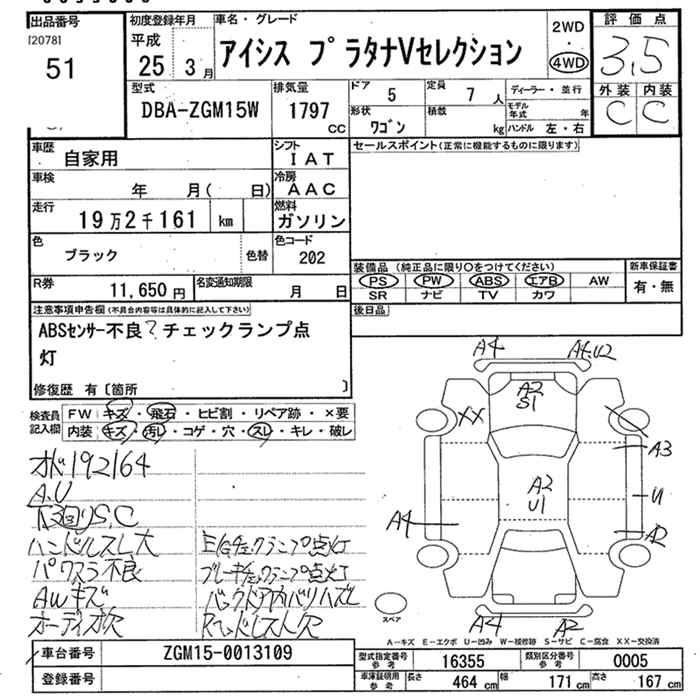 出品番号
[2078]
51
初度登録年月
平成
25 3月
車名・グレード
アイシス プラタナVセレクション
2WD
・
4WD
評価点
3.5
外装 内装
C C
型式
DBA-ZGM15W
排気量
1797
CC
ドア 5
定員 7 人
形状 ワゴン
積載 kg
ディーラー・並行
モデル年式 年
ハンドル 左・右
車歴 自家用
シフト IAT
車検 年 月( 日)
冷房 AAC
走行 19万2千161 km
燃料 ガソリン
色 ブラック 色替
色コード 202
R券 11,650円
名変通知期限 月 日
セールスポイント(正常に機能するものに限ります)
装備品(純正品に限り○をつけてください)
PS PW ABS エアB AW
SR ナビ TV カワ
新車保証書
有・無
後日品
注意事項申告欄(不具合内容等は具体的に記入して下さい)
ABSセンサー不良? チェックランプ点
灯
修復歴 有〔箇所 〕
検査員記入欄
FW キズ・飛石・ヒビ割・リペア跡・×要
内装 キズ・汚レ・コゲ・穴・スレ・キレ・破レ
オド192164
A.U
S.C
ハンドルスレ大
パワスラ不良
AWキズ
オーディオ欠
E/Gチェックランプ点灯
ブレーキチェックランプ点灯
バックドア内バリハズレ
Rヘッドレスト欠
A4
A4.U2
A2
S1
XX
A3
A2
U1
U
A4
A2
A4
A2
スペア
A－キズ E－エクボ U－凹み W－補修跡 S－サビ C－腐食 XX－交換済
車台番号 ZGM15-0013109
登録番号
型式指定番号 参考 16355
類別区分番号 参考 0005
車庫証明用 参考 長さ 464 cm 幅 171 cm 高さ 167 cm